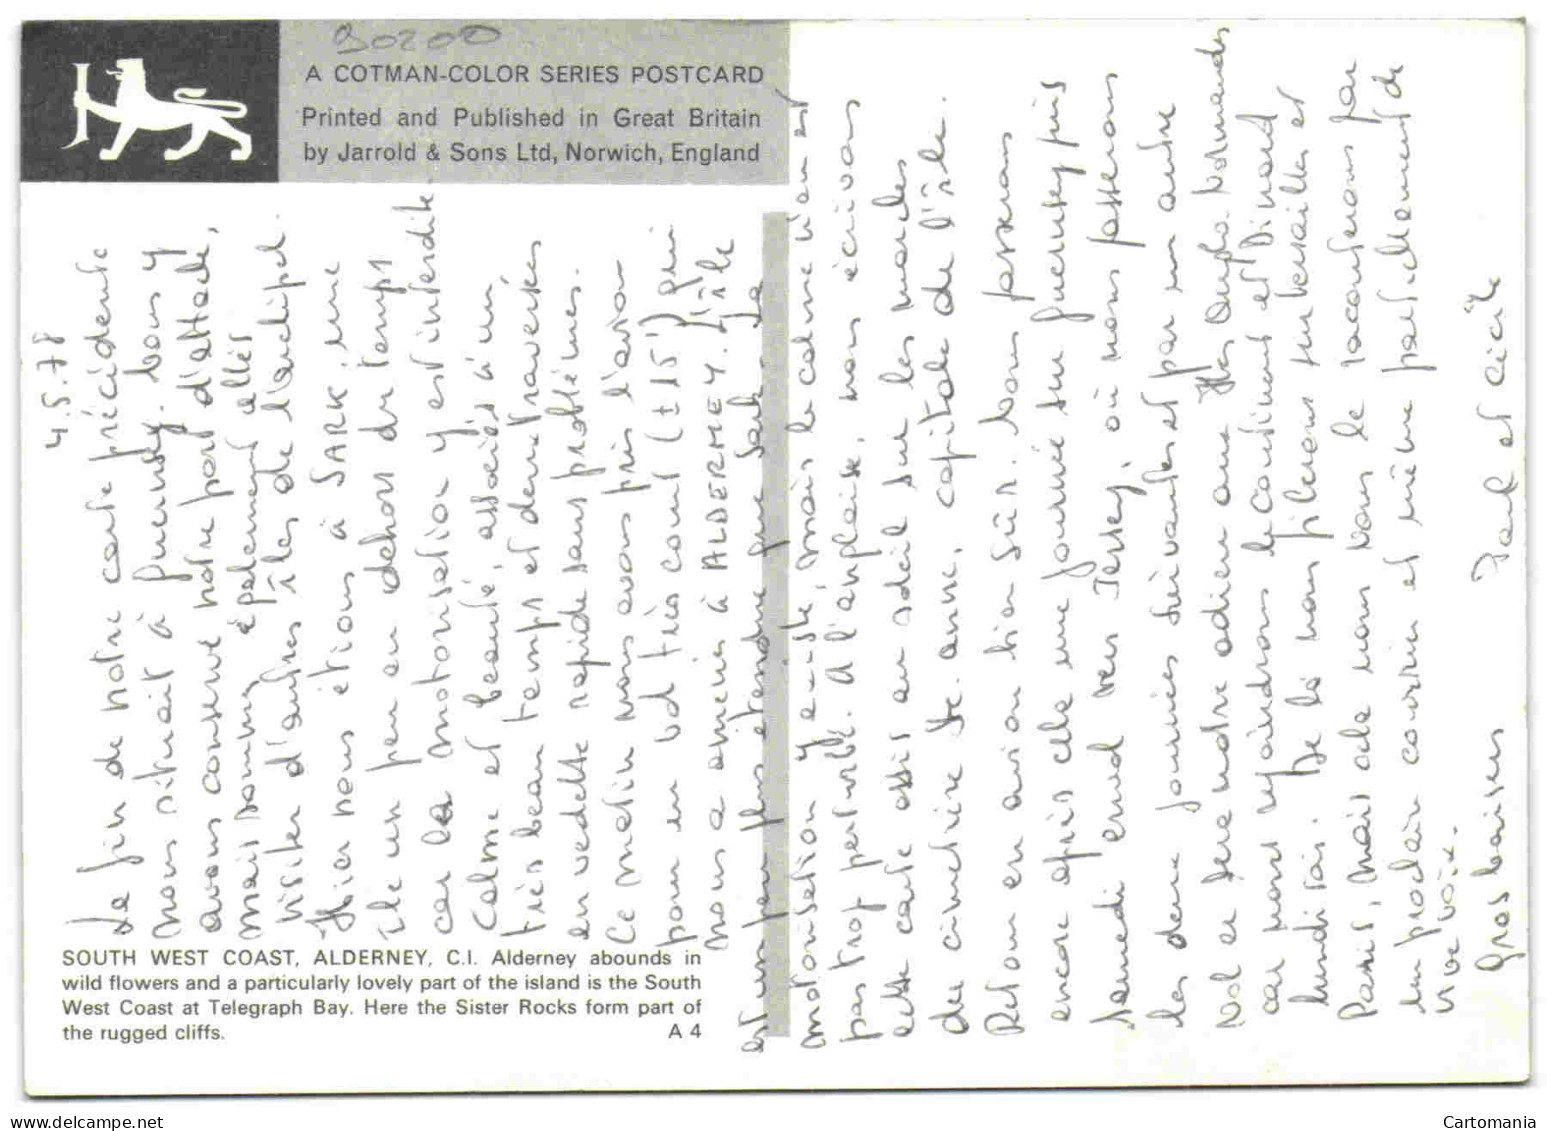 90200
A COTMAN-COLOR SERIES POSTCARD
Printed and Published in Great Britain
by Jarrold & Sons Ltd, Norwich, England
4.5.78
La fin de notre carte précédente
nous situait à Guernsey. Nous y
avons conservé notre port d'attache,
mais sommes également allés
visiter d'autres îles de l'archipel.
Hier nous étions à SARK, une
île un peu en dehors du temps
car la motorisation y est interdite.
Calme et beauté, associés à un
très beau temps et deux traversées
en vedette rapide sans problèmes.
Ce matin nous avons pris l'avion
pour un vol très court (± 15') qui
nous a amené à ALDERNEY. L'île
est un peu plus étendue que Sark. La
motorisation y existe, mais le calme n'en est
pas trop perturbé. A l'anglaise, nous écrivons
cette carte assis au soleil sur les marches
du cimetière Ste. Anne, capitale de l'île.
Retour en avion bien sûr. Nous passerons
encore après cela une journée sur Guernsey puis
samedi envol vers Jersey, où nous passerons
les deux journées suivantes et par un autre
vol ce sera notre adieu aux îles Anglo-Normandes
car nous rejoindrons le Continent et Dinard
lundi soir. De là nous filerons sur Versailles et
Paris, mais cela nous vous le raconterons par
un prochain courrier et même partiellement de
vive voix.
Gros baisers
Paul et Cécile
SOUTH WEST COAST, ALDERNEY, C.I. Alderney abounds in
wild flowers and a particularly lovely part of the island is the South
West Coast at Telegraph Bay. Here the Sister Rocks form part of
the rugged cliffs. A 4
Cartomania